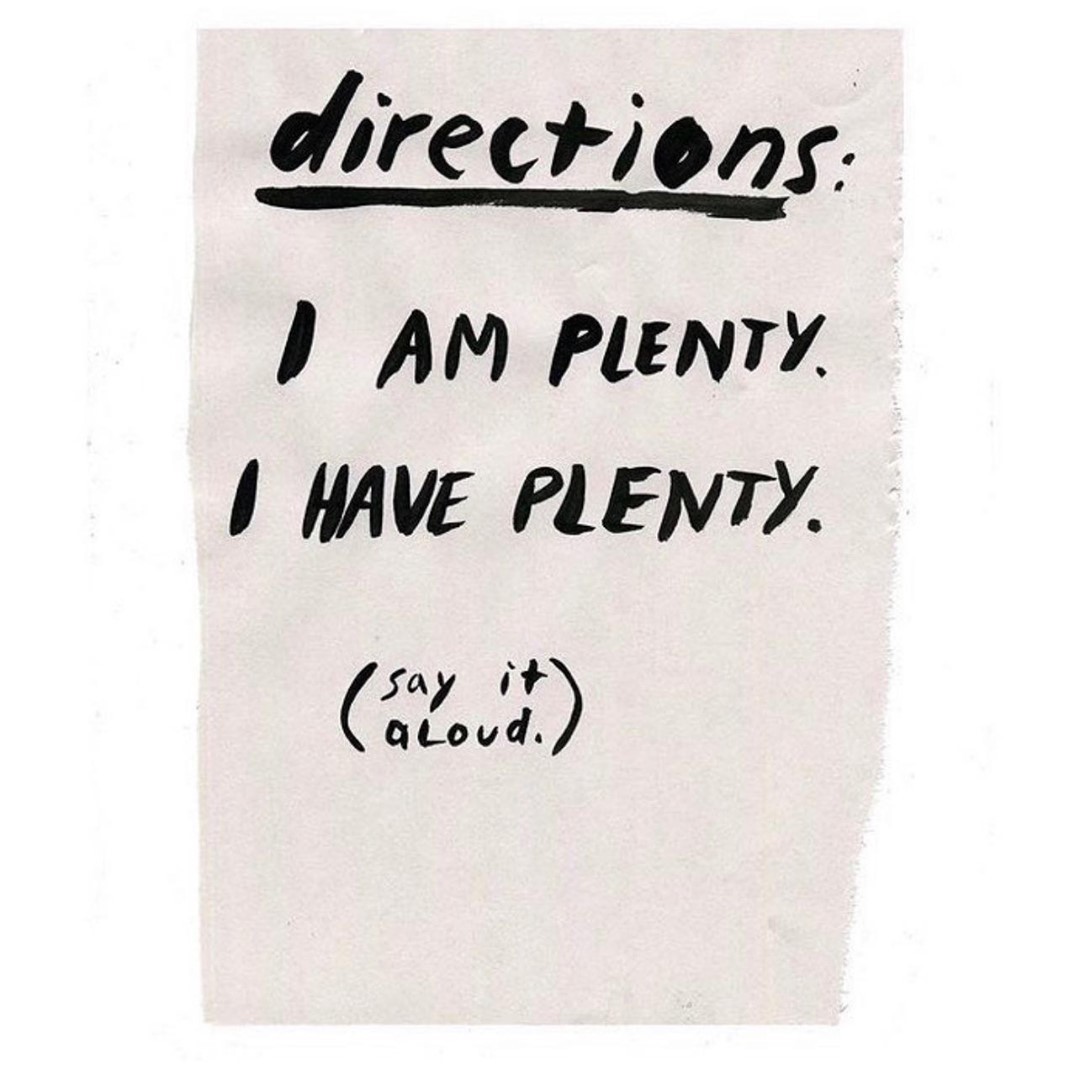 directions:
I AM PLENTY.
I HAVE PLENTY.
(say it
aLoud.)